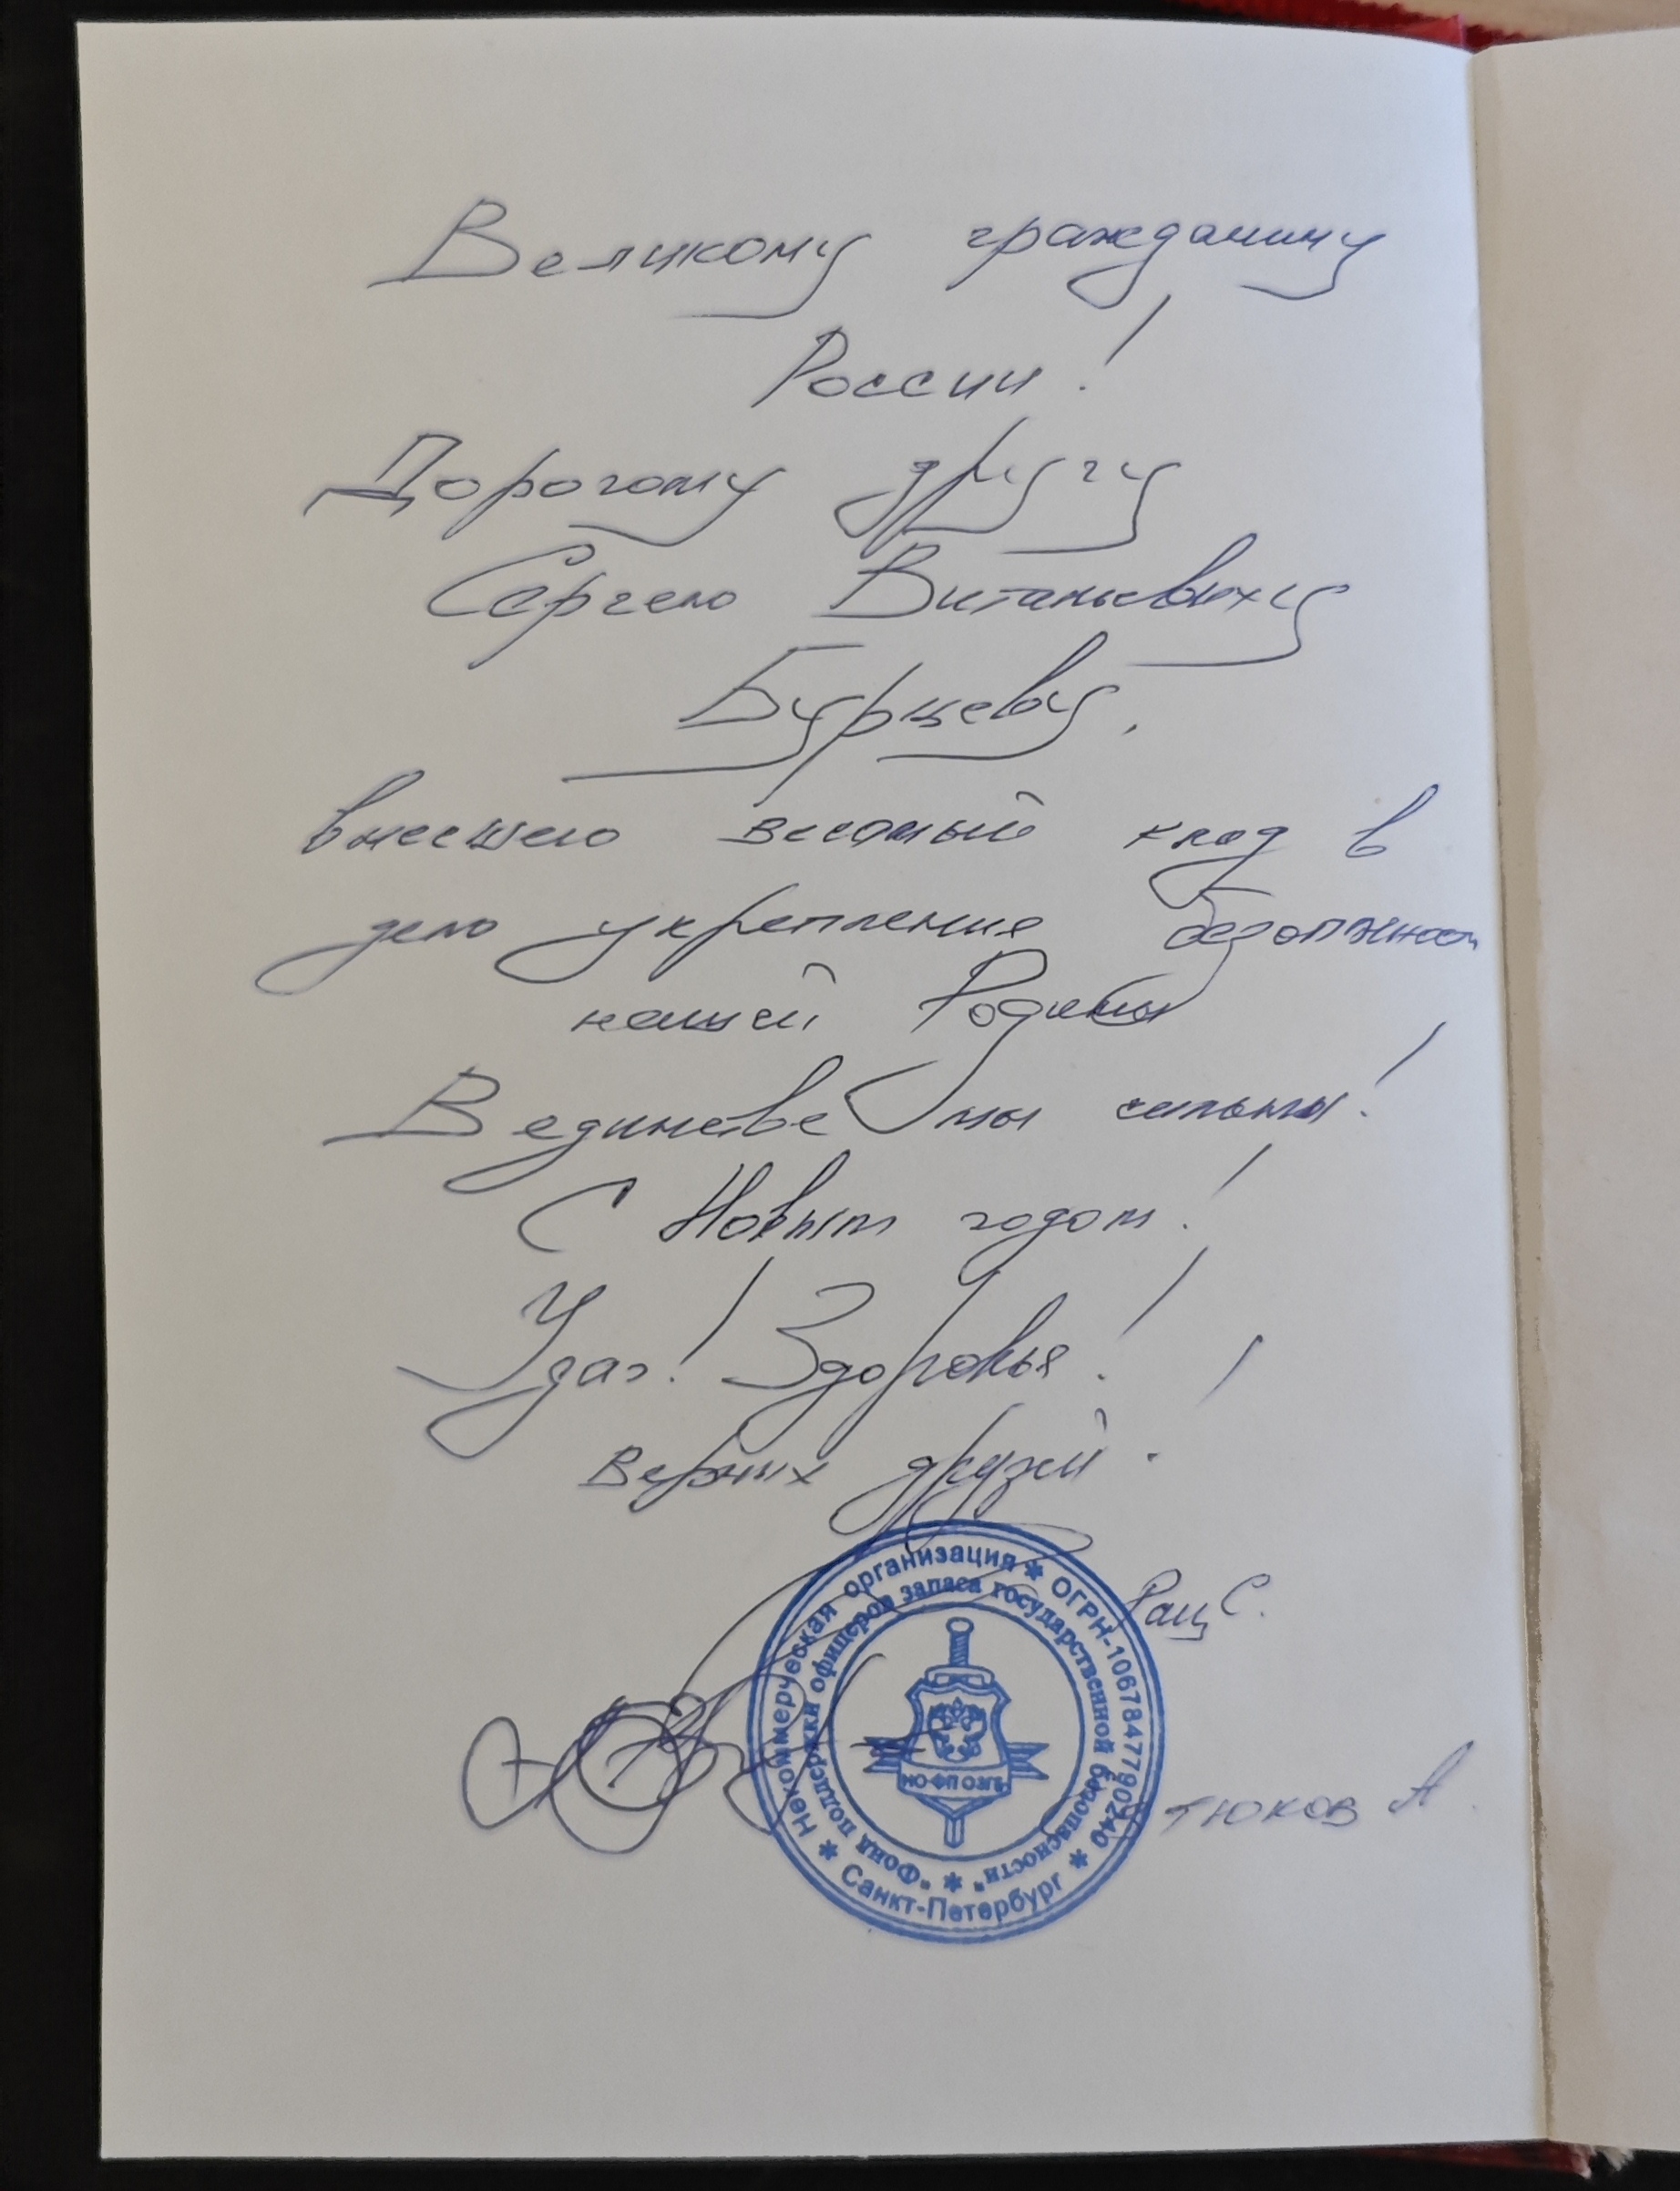 Великому гражданину
России!
Дорогому другу
Сергею Витальевичу
Бурцеву,
внесшего весомый вклад в
дело укрепления безопасности
нашей Родины
В единстве мы сильны!
С Новым годом!
Удач! Здоровья!
Верных друзей!
Рац С.
тюков А.
* Некоммерческая организация * ОГРН-1067847790240 * Санкт-Петербург
* "Фонд поддержки офицеров запаса государственной безопасности"
НО ФП ОЗГБ